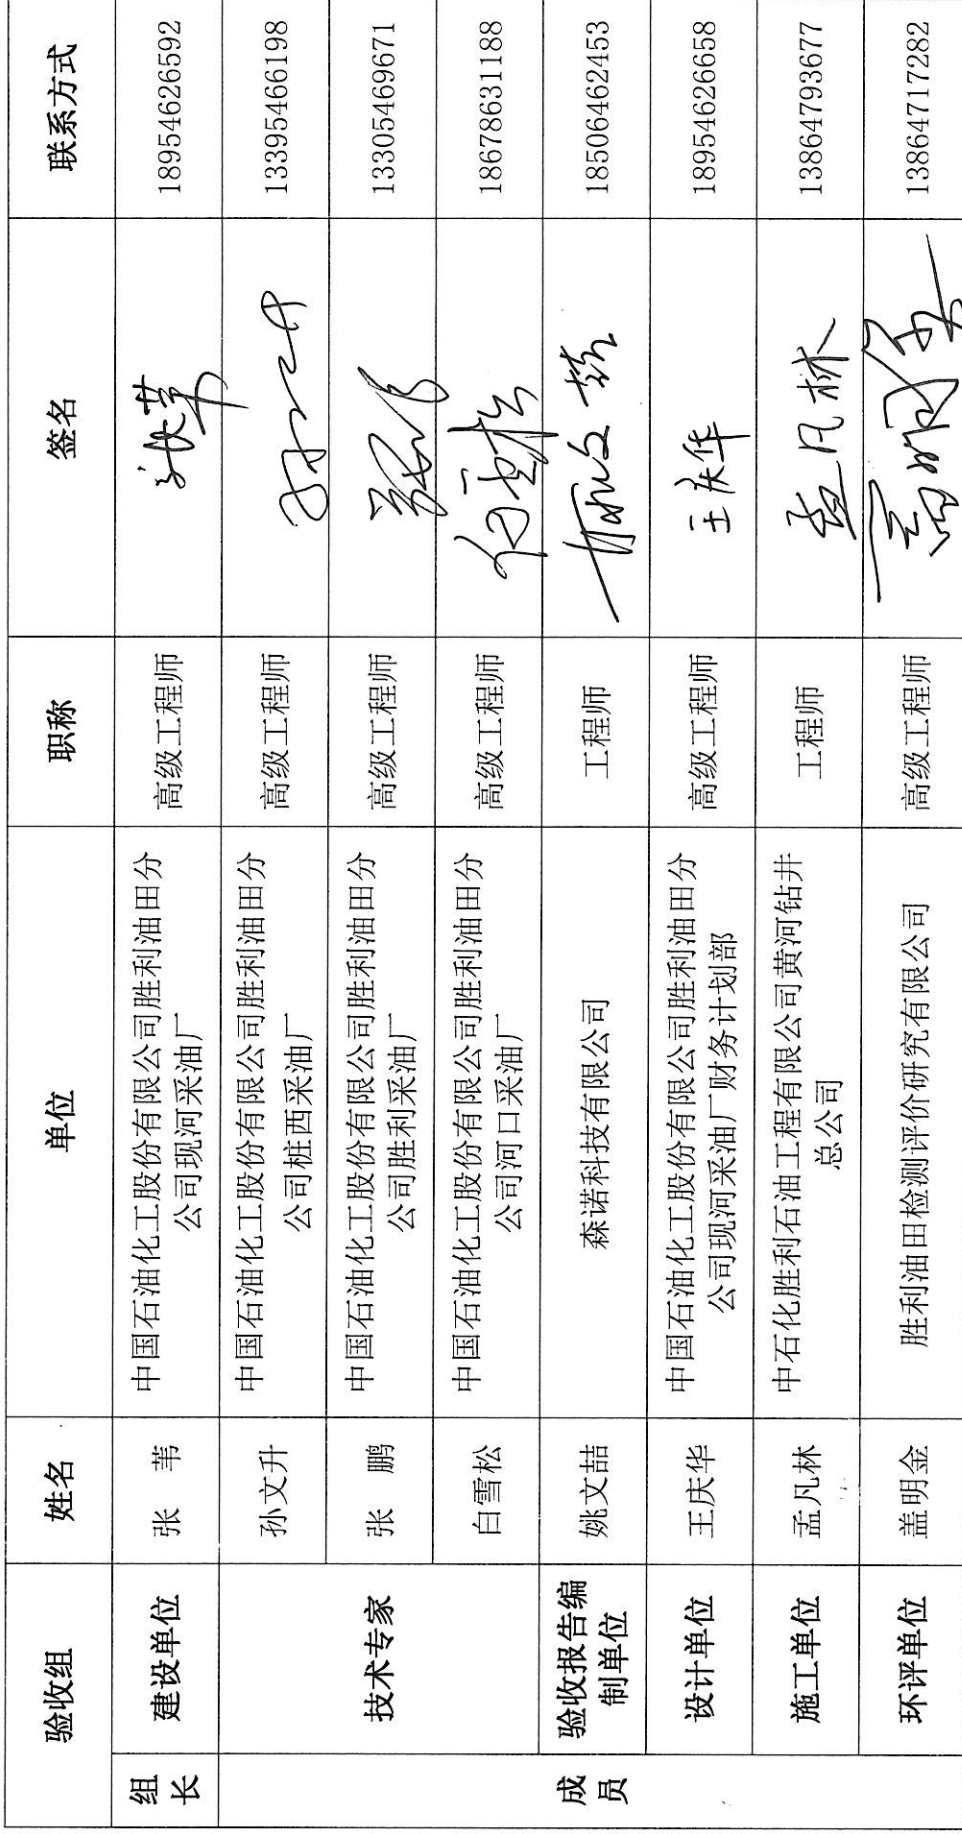 验收组 姓名 单位 职称 签名 联系方式
组长 建设单位 张 苇 中国石油化工股份有限公司胜利油田分公司现河采油厂 高级工程师 张苇 18954626592
成员 技术专家 孙文升 中国石油化工股份有限公司胜利油田分公司桩西采油厂 高级工程师 13395466198
张 鹏 中国石油化工股份有限公司胜利油田分公司胜利采油厂 高级工程师 13305469671
白雪松 中国石油化工股份有限公司胜利油田分公司河口采油厂 高级工程师 白雪松 18678631188
验收报告编制单位 姚文喆 森诺科技有限公司 工程师 姚文喆 18506462453
设计单位 王庆华 中国石油化工股份有限公司胜利油田分公司现河采油厂财务计划部 高级工程师 王庆华 18954626658
施工单位 孟凡林 中石化胜利石油工程有限公司黄河钻井总公司 工程师 孟凡林 13864793677
环评单位 盖明金 胜利油田检测评价研究有限公司 高级工程师 盖明金 13864717282